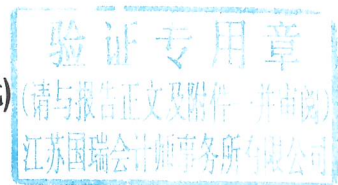 验证专用章
(请与报告正文及附件一并审阅)
江苏国瑞会计师事务所有限公司